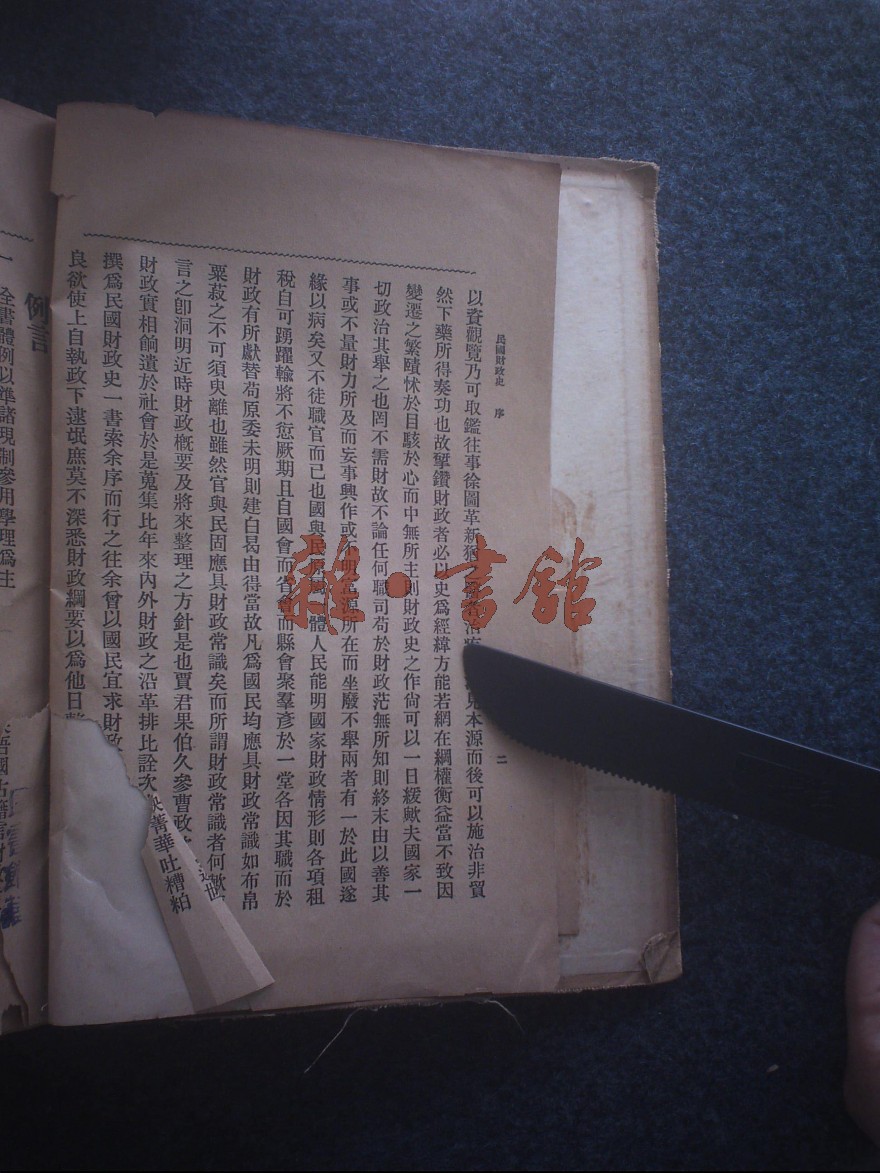 民國財政史 序 二
以資觀覽乃可取鑑往事徐圖革新 見本源而後可以施治非貿
然下藥所得奏功也故擘鑽財政者必以史爲經緯方能若網在綱權衡益當不致因
變遷之繁賾怵於目駭於心而中無所主則財政史之作尙可以一日緩歟夫國家一
切政治其舉之也罔不需財故不論任何職司苟於財政茫無所知則終末由以善其
事或不量財力所及而妄事興作或不明 源所在而坐廢不舉兩者有一於此國遂
緣以病矣又不徒職官而已也國與民原 體人民能明國家財政情形則各項租
稅自可踴躍輸將不愆厥期且自國會而省會而縣會聚羣彥於一堂各因其職而於
財政有所獻替苟原委未明則建白曷由得當故凡爲國民均應具財政常識如布帛
粟菽之不可須臾離也雖然官與民固應具財政常識矣而所謂財政常識者何歟
言之卽洞明近時財政槪要及將來整理之方針是也賈君果伯久參曹政 世
財政實相餉遺於社會於是蒐集比年來內外財政之沿革排比詮次 菁華吐糟粕
撰爲民國財政史一書索余序而行之往余曾以國民宜求財政
良欲使上自執政下逮氓庶莫不深悉財政綱要以爲他日
例言
一 全書體例以準諸現制參用學理爲主
吾國古籍言財
雜·書館